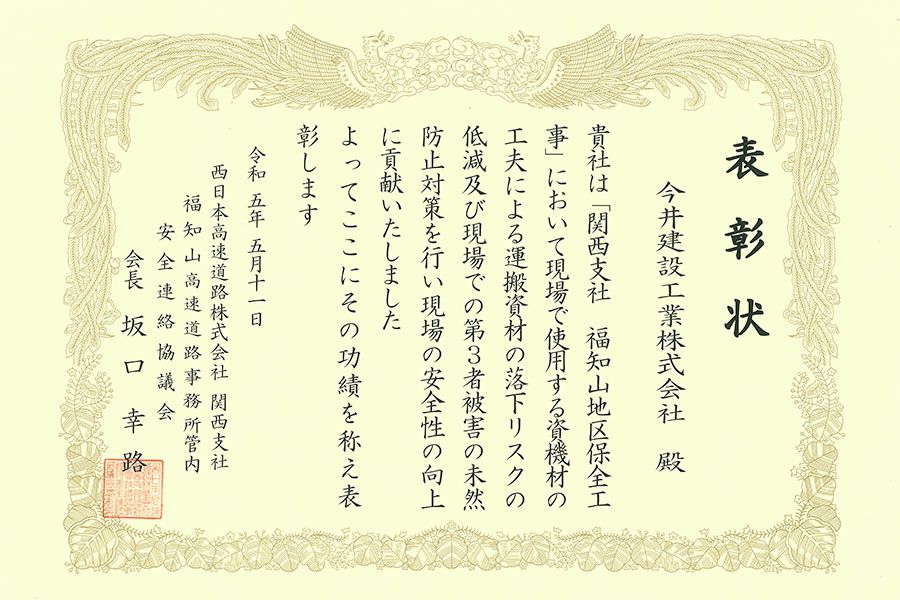 表彰状
今井建設工業株式会社 殿
貴社は「関西支社 福知山地区保全工
事」において現場で使用する資機材の
工夫による運搬資材の落下リスクの
低減及び現場での第3者被害の未然
防止対策を行い現場の安全性の向上
に貢献いたしました
よってここにその功績を称え表
彰します
令和 五年 五月十一日
西日本高速道路株式会社 関西支社
福知山高速道路事務所管内
安全連絡協議会
会長 坂口 幸路